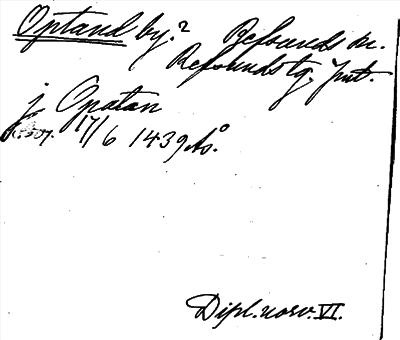 Optand by.? Refsunds sn.
Refsunds tg. Jmtl.
j Opatan
17/6 1439 Ao.
Dipl. norv. VI.